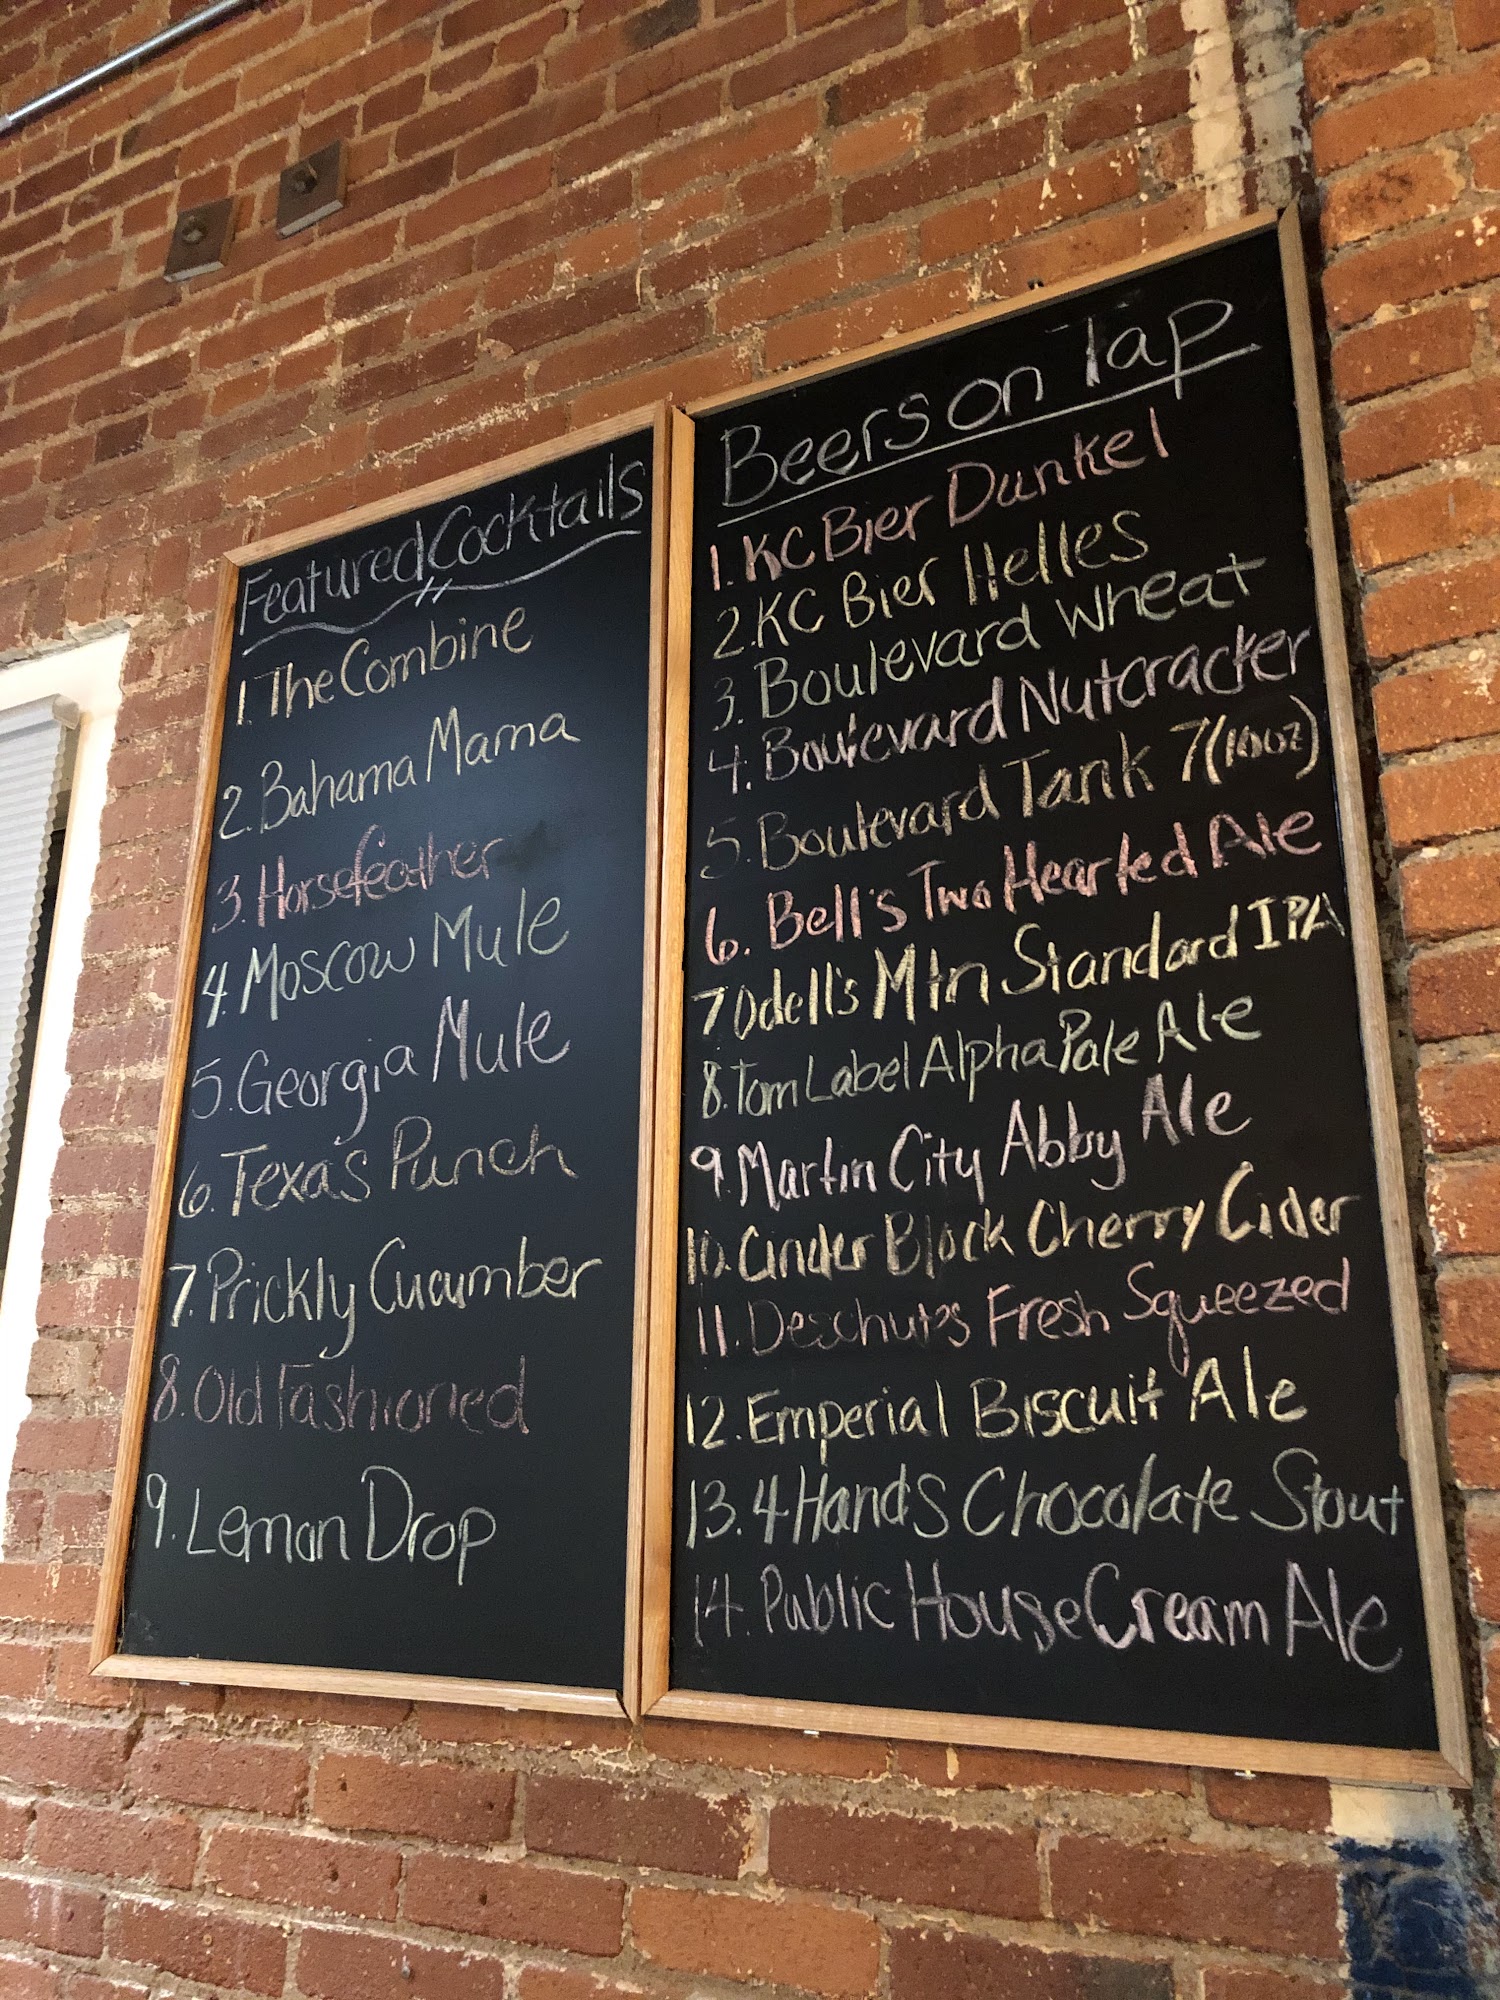 Featured Cocktails
1. The Combine
2. Bahama Mama
3. Horsefeather
4. Moscow Mule
5. Georgia Mule
6. Texas Punch
7. Prickly Cucumber
8. Old Fashioned
9. Lemon Drop
Beers on Tap
1. KC Bier Dunkel
2. KC Bier Helles
3. Boulevard Wheat
4. Boulevard Nutcracker
5. Boulevard Tank 7 (10oz)
6. Bell's Two Hearted Ale
7 Odell's Mtn Standard IPA
8. Tom Label Alpha Pale Ale
9. Martin City Abby Ale
10. Cinder Block Cherry Cider
11. Deschutes Fresh Squeezed
12. Emperial Biscuit Ale
13. 4 Hands Chocolate Stout
14. Public House Cream Ale